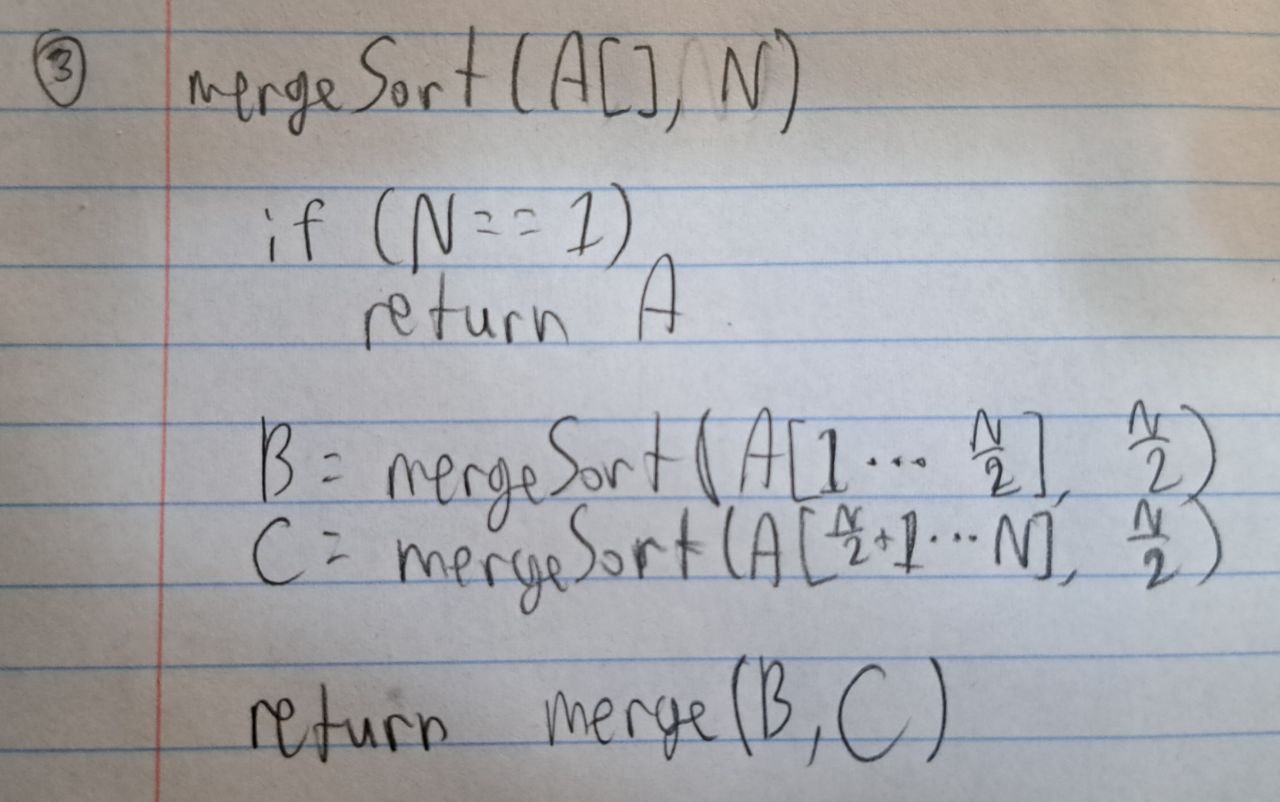 ③ mergeSort(A[], N)
if (N == 1)
return A
B = mergeSort(A[1 ... N/2], N/2)
C = mergeSort(A[N/2+1 ... N], N/2)
return merge(B, C)